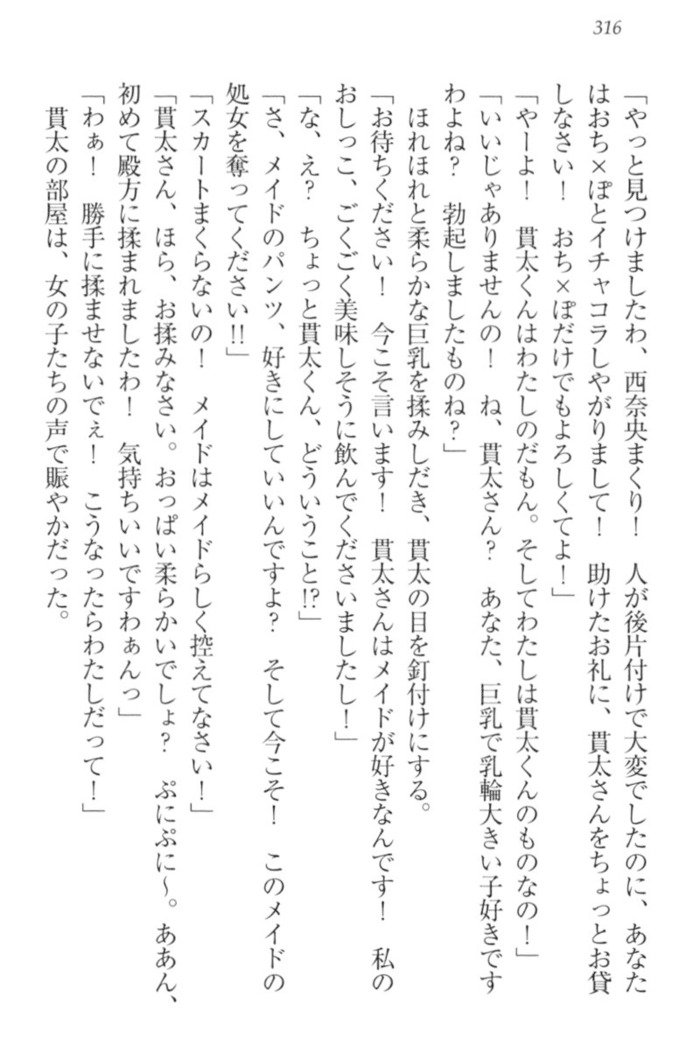 316
「やっと見つけましたわ、西奈央まくり！　人が後片付けで大変でしたのに、あなた
はおち×ぽとイチャコラしやがりまして！　助けたお礼に、貫太さんをちょっとお貸
しなさい！　おち×ぽだけでもよろしくてよ！」
「やーよ！　貫太くんはわたしのだもん。そしてわたしは貫太くんのものなの！」
「いいじゃありませんの！　ね、貫太さん？　あなた、巨乳で乳輪大きい子好きです
わよね？　勃起しましたものね？」
　ほれほれと柔らかな巨乳を揉みしだき、貫太の目を釘付けにする。
「お待ちください！　今こそ言います！　貫太さんはメイドが好きなんです！　私の
おしっこ、ごくごく美味しそうに飲んでくださいましたし！」
「な、え？　ちょっと貫太くん、どういうこと!?」
「さ、メイドのパンツ、好きにしていいんですよ？　そして今こそ！　このメイドの
処女を奪ってください!!」
「スカートまくらないの！　メイドはメイドらしく控えてなさい！」
「貫太さん、ほら、お揉みなさい。おっぱい柔らかいでしょ？　ぷにぷに～。ああん、
初めて殿方に揉まれましたわ！　気持ちいいですわぁんっ」
「わぁ！　勝手に揉ませないでぇ！　こうなったらわたしだって！」
　貫太の部屋は、女の子たちの声で賑やかだった。